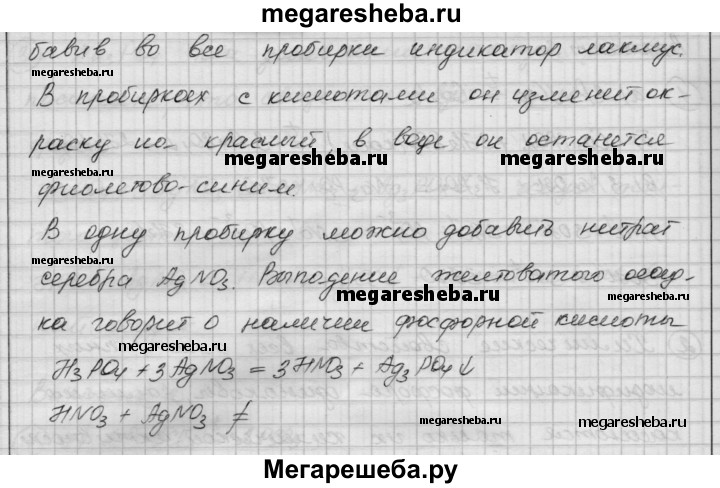 megaresheba.ru
бавив во все пробирки индикатор лакмус.
megaresheba.ru megaresheba.ru
В пробирках с кислотами он изменит ок-
раску на красный, в воде он останется
megaresheba.ru megaresheba.ru
фиолетово-синим.
В одну пробирку можно добавить нитрат
megaresheba.ru
серебра AgNO3. Выпадение желтоватого осад-
megaresheba.ru megaresheba.ru
ка говорит о наличии фосфорной кислоты
H3PO4 + 3AgNO3 = 3HNO3 + Ag3PO4↓
HNO3 + AgNO3 ≠
megaresheba.ru
megaresheba.ru
Мегарешеба.ру